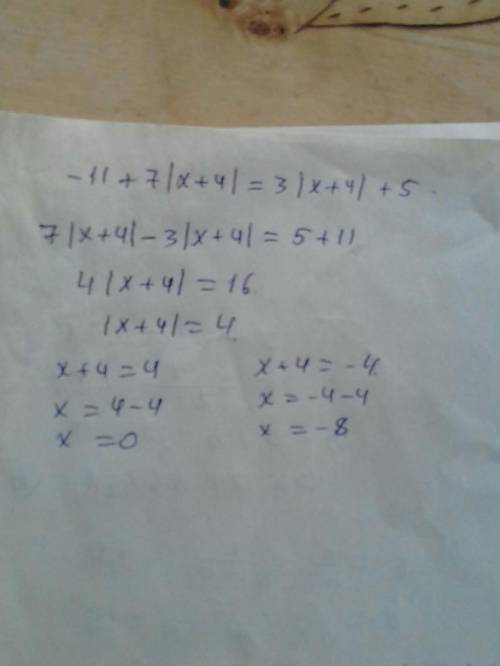 -11 + 7|x+4| = 3|x+4| + 5.
7|x+4| - 3|x+4| = 5 + 11
4|x+4| = 16.
|x+4| = 4.
x+4 = 4 x+4 = -4.
x = 4-4 x = -4-4
x = 0 x = -8